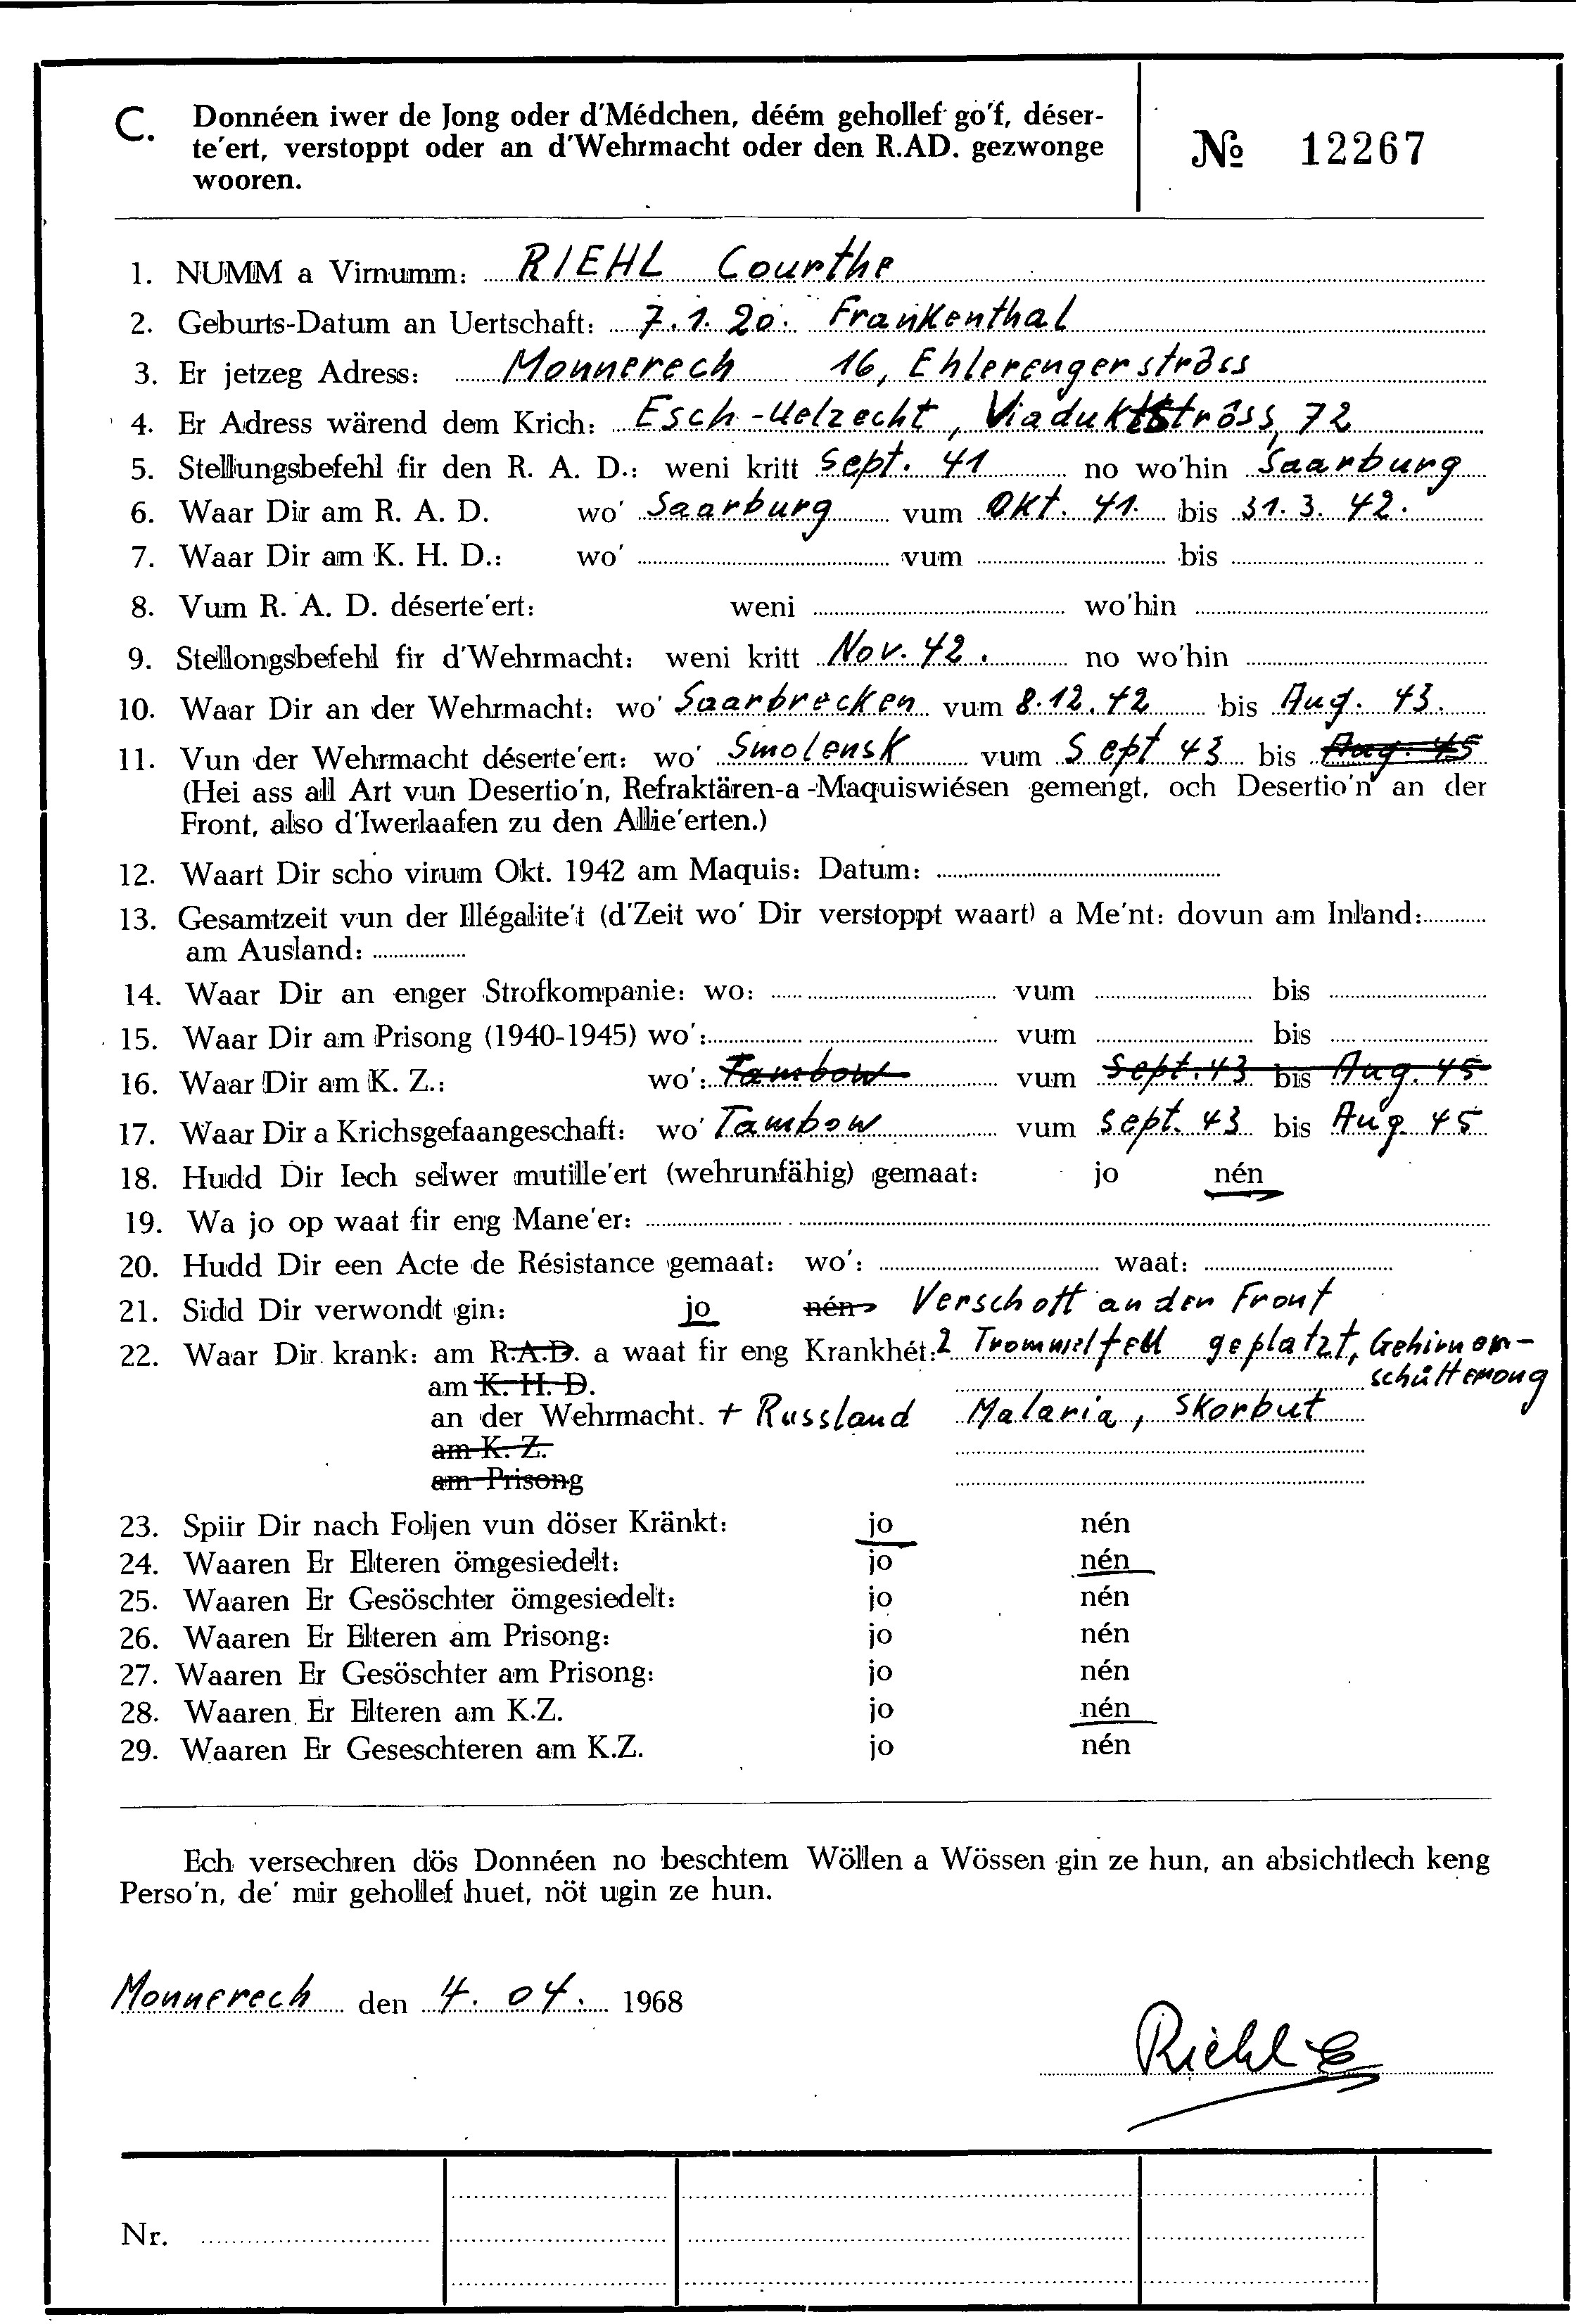 C. Donnéen iwer de Jong oder d'Médchen, déém gehollef go'f, déser-
te'ert, verstoppt oder an d'Wehrmacht oder den R.AD. gezwonge
wooren.
№ 12267
1. NUMM a Virnumm: RIEHL Courthe
2. Geburts-Datum an Uertschaft: 7.1.20. Frankenthal
3. Er jetzeg Adress: Monnerech 16, Ehlerengerstrôss
4. Er Adress wärend dem Krich: Esch-Uelzecht, Viaduktstrôss, 72
5. Stellungsbefehl fir den R. A. D.: weni kritt Sept. 41 no wo'hin Saarburg
6. Waar Dir am R. A. D. wo' Saarburg vum Okt. 41. bis 31.3.42.
7. Waar Dir am K. H. D.: wo' vum bis
8. Vum R. A. D. déserte'ert: weni wo'hin
9. Stellongsbefehl fir d'Wehrmacht: weni kritt Nov. 42. no wo'hin
10. Waar Dir an der Wehrmacht: wo' Saarbrecken vum 8.12.42 bis Aug. 43.
11. Vun der Wehrmacht déserte'ert: wo' Smolensk vum Sept 43 bis Aug. 45
(Hei ass all Art vun Desertio'n, Refraktären-a -Maquiswiésen gemengt, och Desertio'n an der
Front, also d'Iwerlaafen zu den Allie'erten.)
12. Waart Dir scho virum Okt. 1942 am Maquis: Datum:
13. Gesamtzeit vun der Illégalite't (d'Zeit wo' Dir verstoppt waart) a Me'nt: dovun am Inland:
am Ausland:
14. Waar Dir an enger Strofkompanie: wo: vum bis
15. Waar Dir am Prisong (1940-1945) wo': vum bis
16. Waar Dir am K. Z.: wo': Tambow vum Sept. 43 bis Aug. 45
17. Waar Dir a Krichsgefaangeschaft: wo' Tambow vum Sept. 43 bis Aug. 45
18. Hudd Dir Iech selwer mutille'ert (wehrunfähig) gemaat: jo nén
19. Wa jo op waat fir eng Mane'er:
20. Hudd Dir een Acte de Résistance gemaat: wo': waat:
21. Sidd Dir verwondt gin: jo nén Verschott an der Front
22. Waar Dir krank: am R.A.D. a waat fir eng Krankhét: 2 Trommelfell geplatzt, Gehirner-
schütterong
am K. H. D.
an der Wehrmacht. + Russland Malaria, Skorbut
am K. Z.
am Prisong
23. Spiir Dir nach Foljen vun döser Kränkt: jo nén
24. Waaren Er Elteren ömgesiedelt: jo nén
25. Waaren Er Gesöschter ömgesiedelt: jo nén
26. Waaren Er Elteren am Prisong: jo nén
27. Waaren Er Gesöschter am Prisong: jo nén
28. Waaren Er Elteren am K.Z. jo nén
29. Waaren Er Geseschteren am K.Z. jo nén
Ech versechren dös Donnéen no beschtem Wöllen a Wössen gin ze hun, an absichtlech keng
Perso'n, de' mir gehollef huet, nöt ugin ze hun.
Monnerech den 4. 04. 1968
Riehl C
Nr.